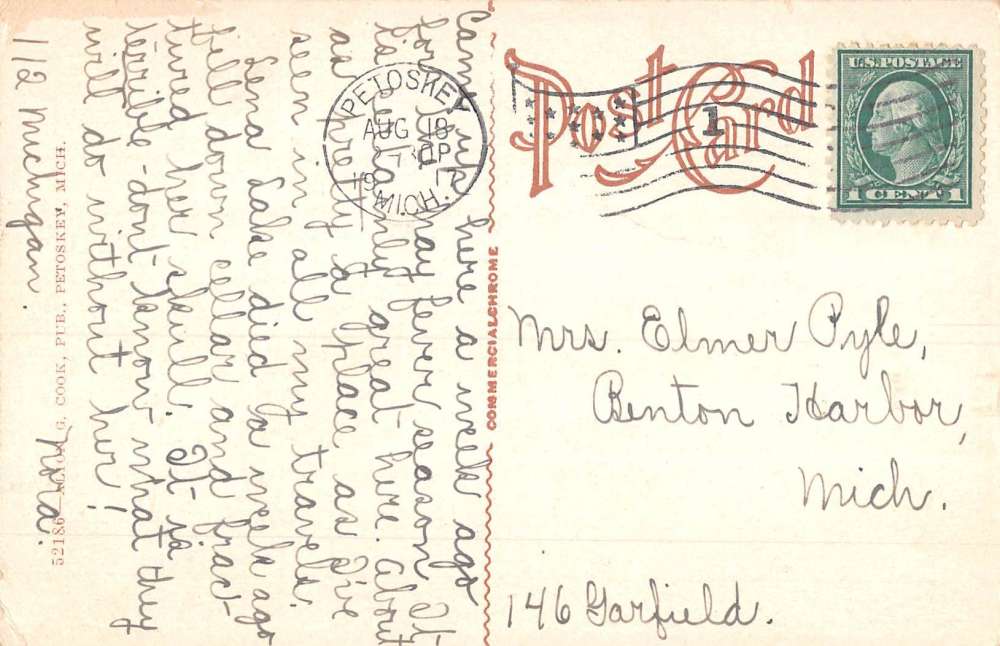 Came here a week ago
for hay fever season. It
is great here. About
as pretty a place as I've
seen in all my travels.
Lena Lake died a week ago
fell down cellar and frac-
tured her skull. It is
terrible - don't know what they
will do without her!
112 Michigan. Nola.
52186 G. COOK, PUB., PETOSKEY, MICH.
COMMERCIALCHROME
Post Card
PETOSKEY
AUG 18
MICH.
1
U.S. POSTAGE
1 CENT 1
Mrs. Elmer Pyle,
Benton Harbor,
Mich.
146 Garfield.